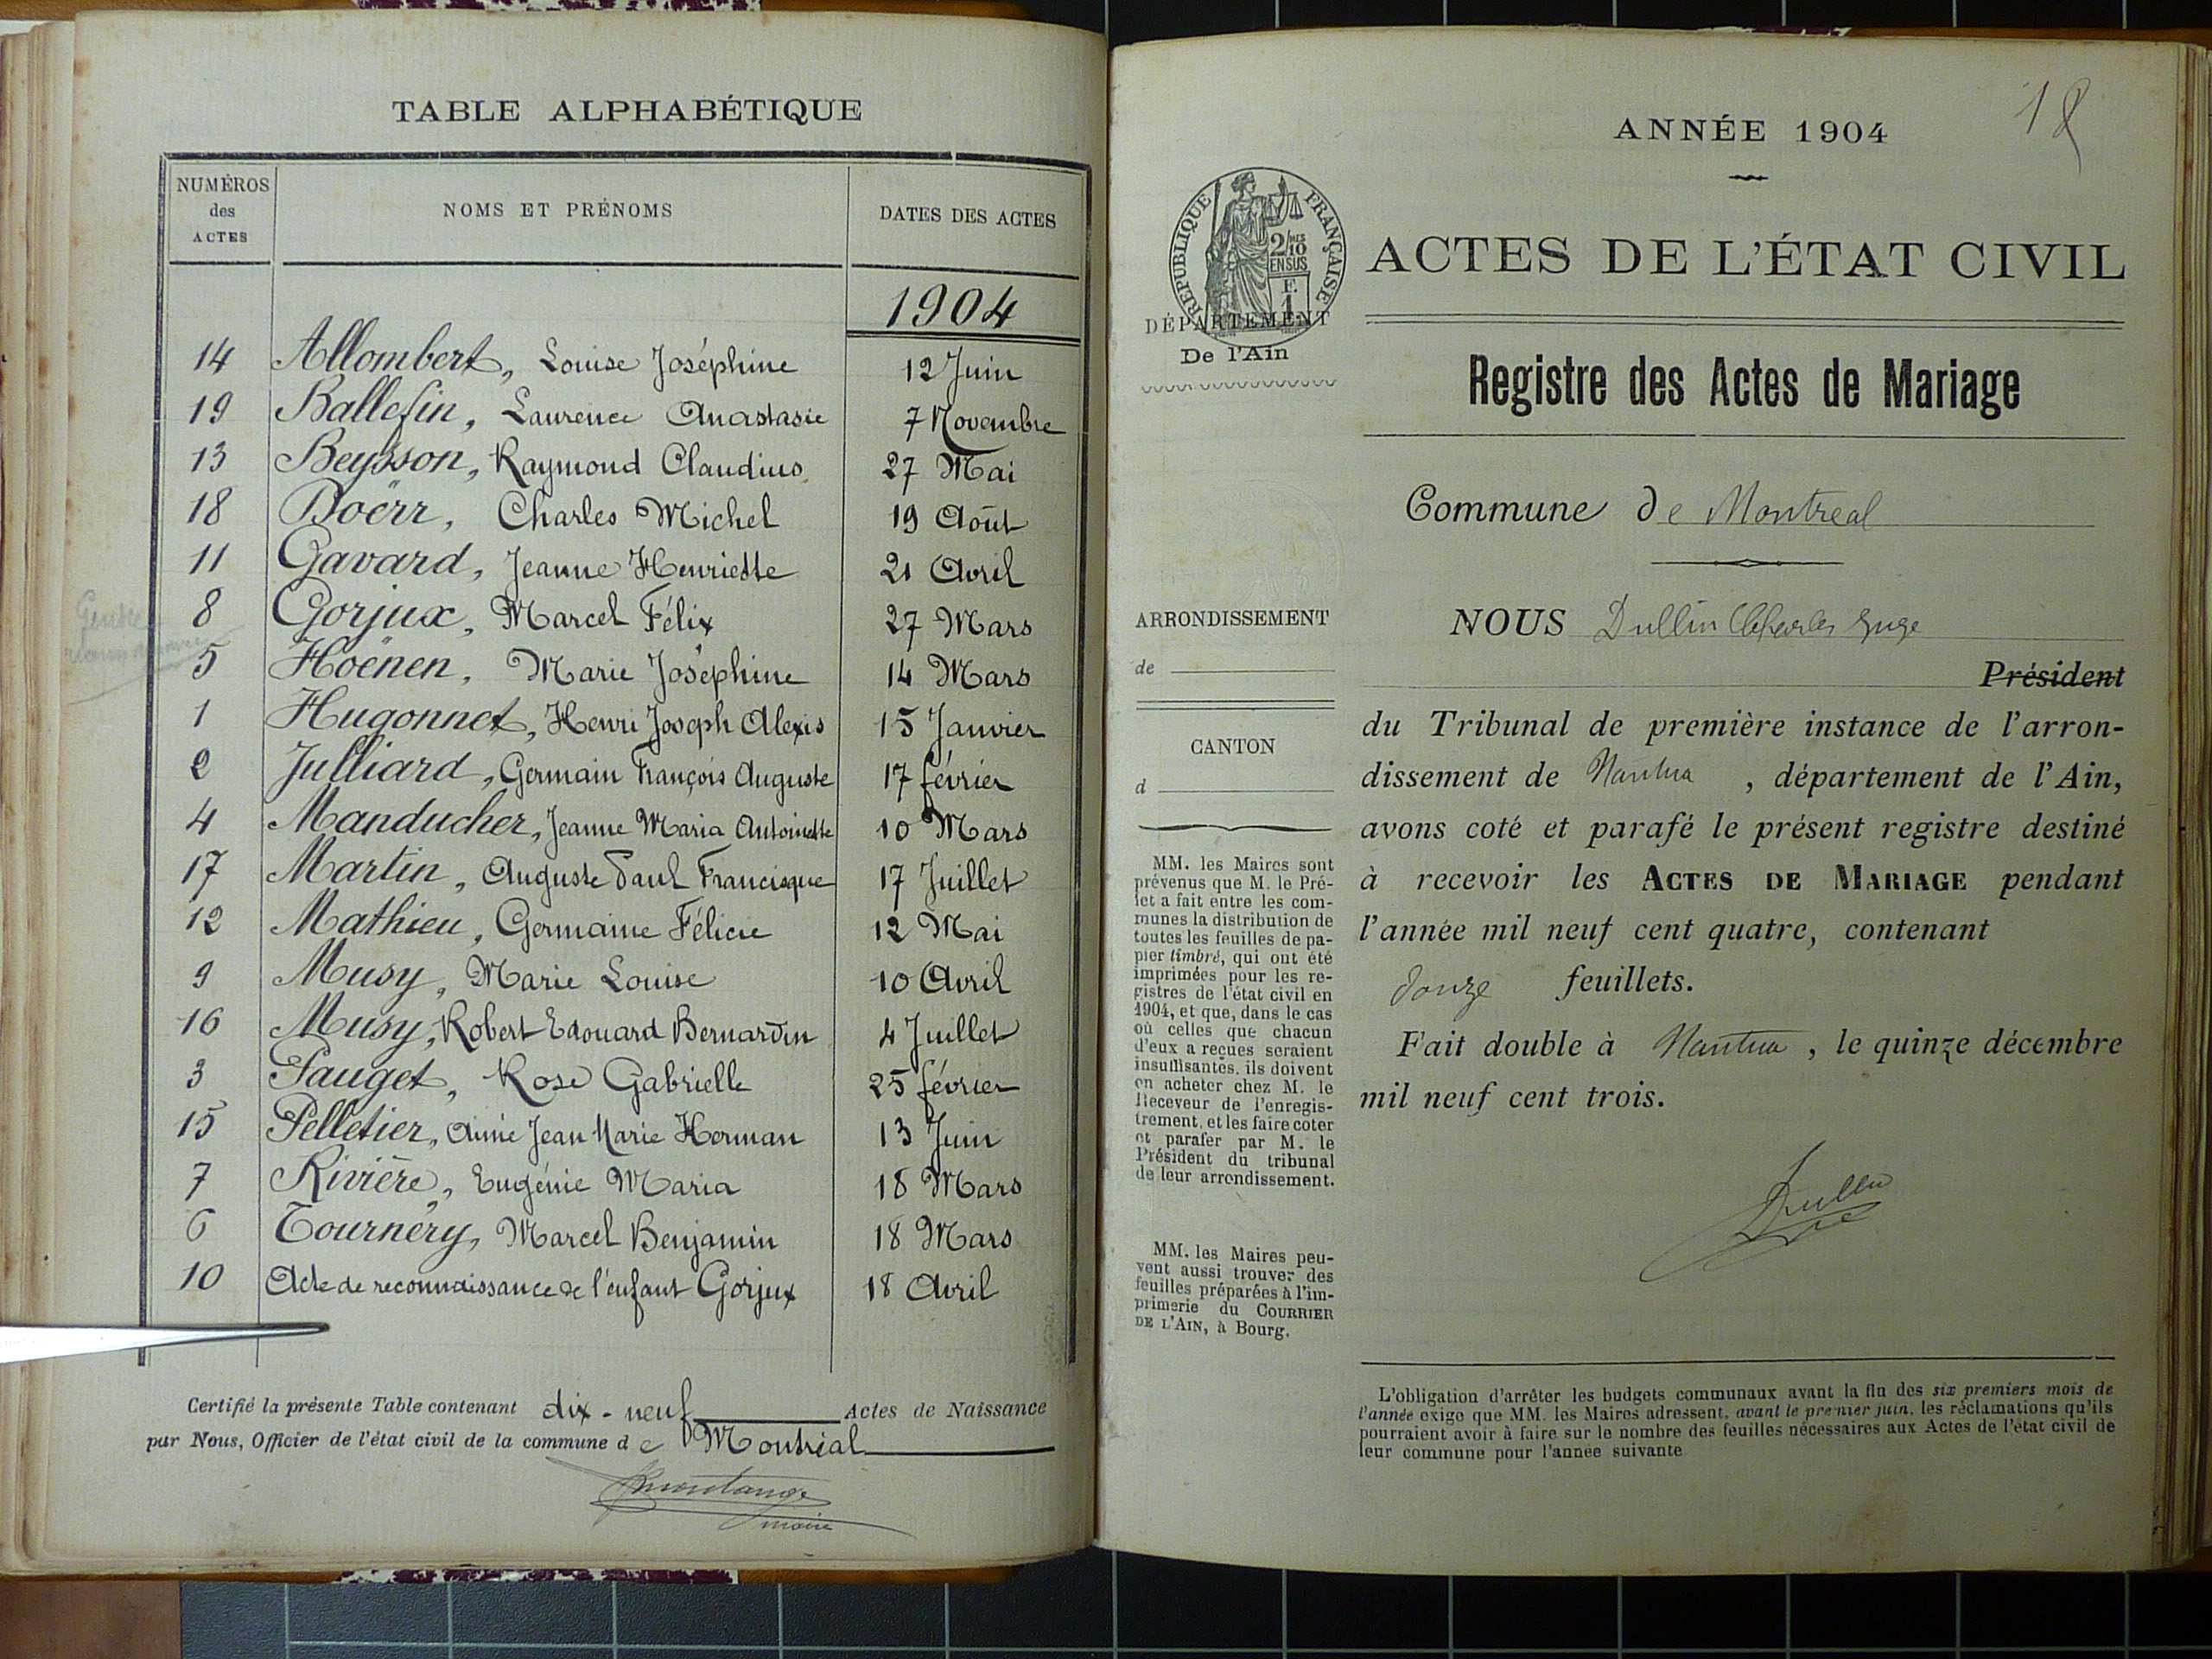 TABLE ALPHABÉTIQUE
NUMÉROS des ACTES
NOMS ET PRÉNOMS
DATES DES ACTES
1904
14 Allombert, Louise Joséphine 12 Juin
19 Ballefin, Laurence Anastasie 7 Novembre
13 Beysson, Raymond Claudius 27 Mai
18 Boërr, Charles Michel 19 Août
11 Gavard, Jeanne Henriette 21 Avril
8 Gorjux, Marcel Félix 27 Mars
5 Hoënen, Marie Joséphine 14 Mars
1 Hugonnet, Henri Joseph Alexis 15 Janvier
2 Julliard, Germain François Auguste 17 février
4 Manducher, Jeanne Maria Antoinette 10 Mars
17 Martin, Auguste Paul Francisque 17 Juillet
12 Mathieu, Germaine Félicie 12 Mai
9 Musy, Marie Louise 10 Avril
16 Musy, Robert Edouard Bernardin 4 Juillet
3 Pauget, Rose Gabrielle 25 février
15 Pelletier, Aimé Jean Marie Herman 13 Juin
7 Rivière, Eugénie Maria 18 Mars
6 Tournéry, Marcel Benjamin 18 Mars
10 Acte de reconnaissance de l'enfant Gorjux 18 Avril
Certifié la présente Table contenant dix-neuf Actes de Naissance
par Nous, Officier de l'état civil de la commune de Montréal
maire
18
ANNÉE 1904
RÉPUBLIQUE FRANÇAISE
2/10 MES
EN SUS
F.
1
DÉPARTEMENT
De l'Ain
ACTES DE L'ÉTAT CIVIL
Registre des Actes de Mariage
Commune de Montreal
ARRONDISSEMENT
de
CANTON
d
MM. les Maires sont
prévenus que M. le Pré-
fet a fait entre les com-
munes la distribution de
toutes les feuilles de pa-
pier timbré, qui ont été
imprimées pour les re-
gistres de l'état civil en
1904, et que, dans le cas
où celles que chacun
d'eux a reçues seraient
insuffisantes, ils doivent
en acheter chez M. le
Receveur de l'enregis-
trement, et les faire coter
et parafer par M. le
Président du tribunal
de leur arrondissement.
MM. les Maires peu-
vent aussi trouver des
feuilles préparées à l'im-
primerie du COURRIER
DE L'AIN, à Bourg.
NOUS Dullin Charles Juge
Président
du Tribunal de première instance de l'arron-
dissement de Nantua, département de l'Ain,
avons coté et parafé le présent registre destiné
à recevoir les ACTES DE MARIAGE pendant
l'année mil neuf cent quatre, contenant
douze feuillets.
Fait double à Nantua, le quinze décembre
mil neuf cent trois.
Dullin
L'obligation d'arrêter les budgets communaux avant la fin des six premiers mois de
l'année exige que MM. les Maires adressent, avant le premier juin, les réclamations qu'ils
pourraient avoir à faire sur le nombre des feuilles nécessaires aux Actes de l'état civil de
leur commune pour l'année suivante